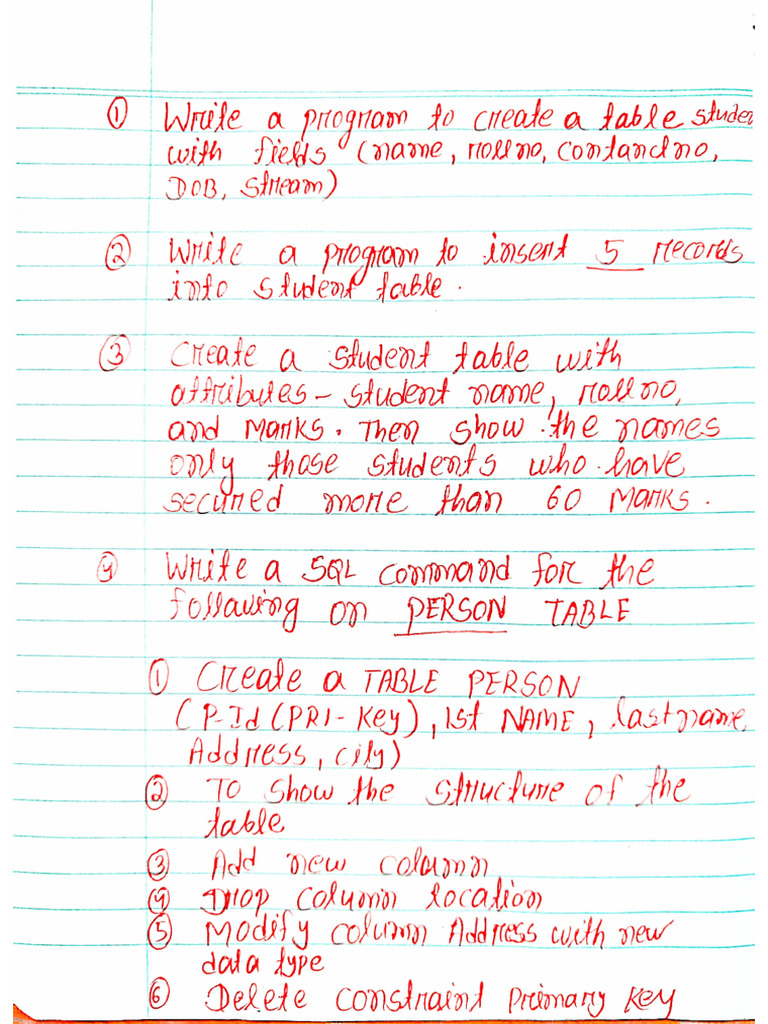 ① Write a program to create a table studen
with fields (name, rollno, contanctno,
DOB, stream)
② Write a program to insert 5 records
into student table.
③ Create a student table with
attributes - student name, rollno,
and Marks. Then show the names
only those students who have
secured more than 60 Marks.
④ Write a SQL command for the
following on PERSON TABLE
① Create a TABLE PERSON
(P-Id (PRI-Key), 1st NAME, lastname,
Address, city)
② To show the structure of the
table
③ Add new column
④ Drop column location
⑤ Modify column Address with new
data type
⑥ Delete constraint primary key